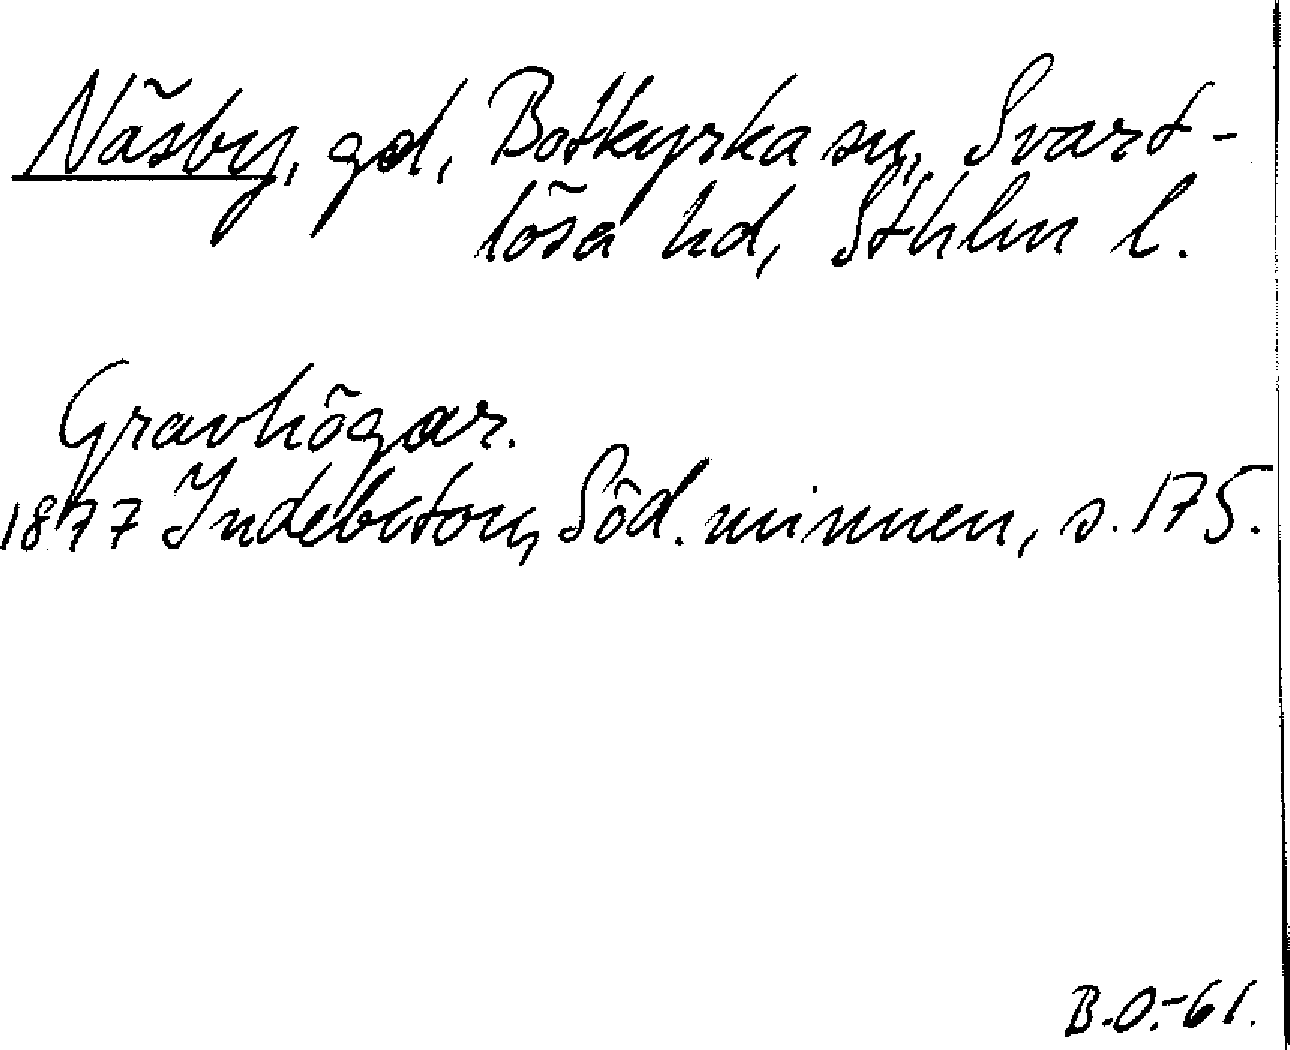 Näsby, gd, Botkyrka sn, Svart-
lösa hd, Sthlm l.
Gravhögar.
1877 Indebetou, Söd. minnen, s. 175.
B.O.-61.